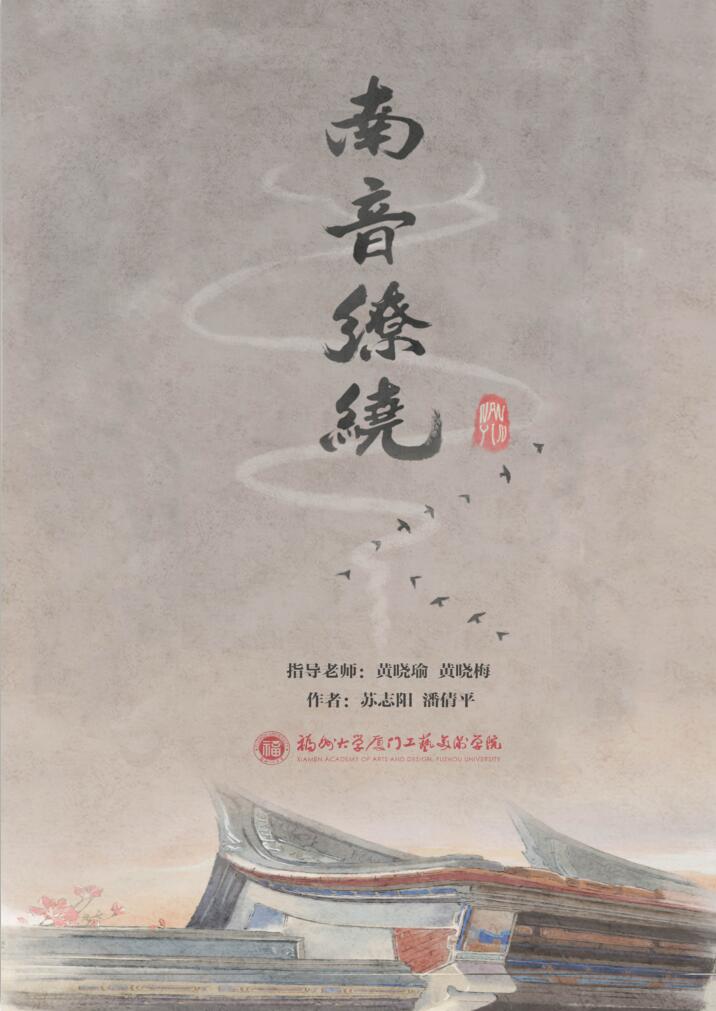 南音繚繞
NAN
YIN
指导老师：黄晓瑜 黄晓梅
作者：苏志阳 潘倩平
福
福州大学厦门工艺美术学院
XIAMEN ACADEMY OF ARTS AND DESIGN, FUZHOU UNIVERSITY